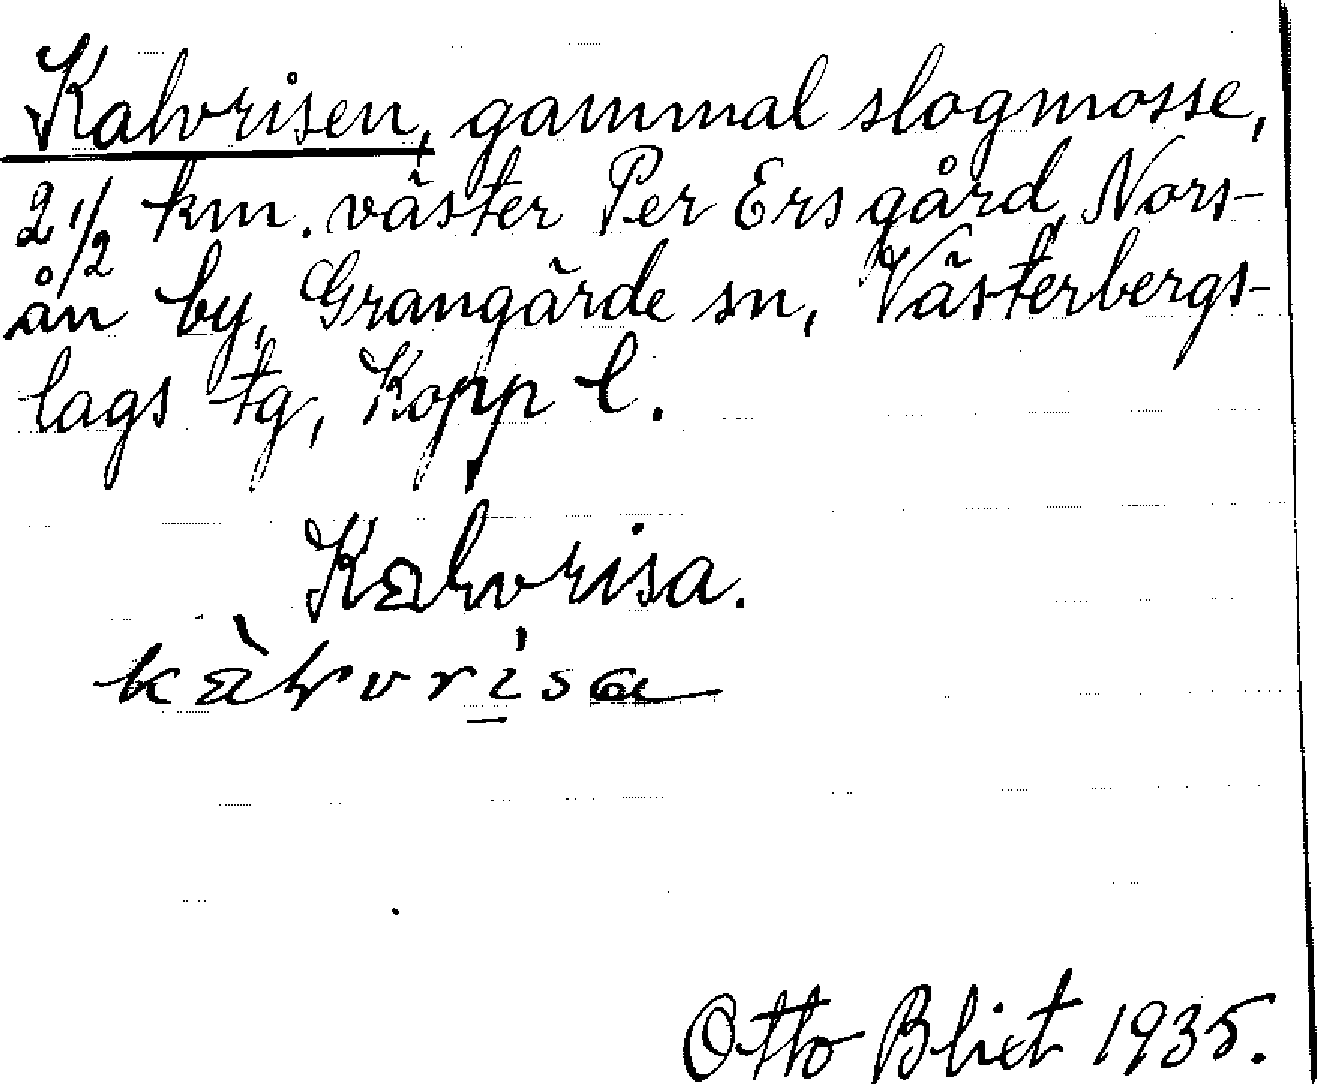 Kalvrisen, gammal slogmosse,
2 1/2 km. väster Per Ers gård, Nors-
ån by, Grangärde sn, Västerbergs-
lags tg, Kopp l.
Kalvrisa.
Otto Blixt 1935.